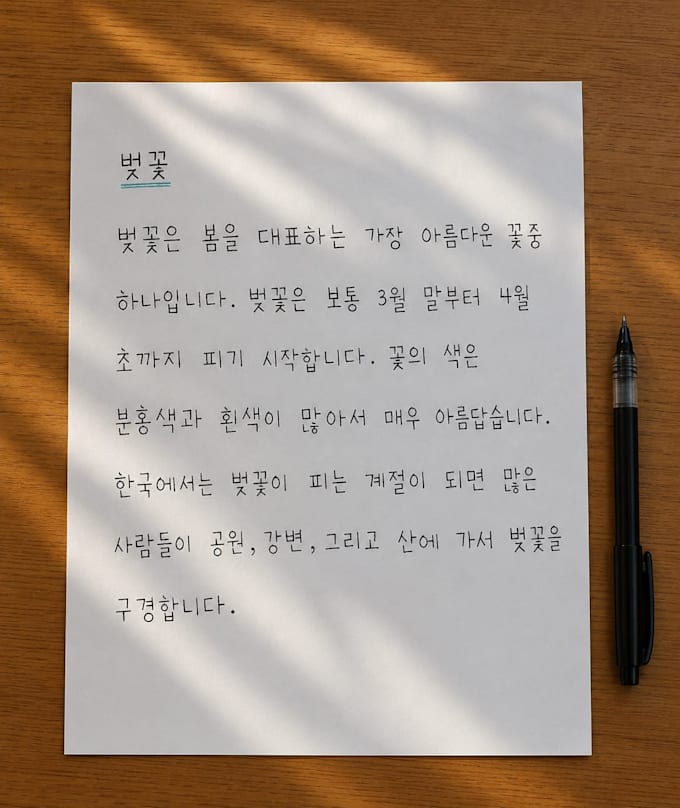 벚꽃
벚꽃은 봄을 대표하는 가장 아름다운 꽃중
하나입니다. 벚꽃은 보통 3월 말부터 4월
초까지 피기 시작합니다. 꽃의 색은
분홍색과 흰색이 많아서 매우 아름답습니다.
한국에서는 벚꽃이 피는 계절이 되면 많은
사람들이 공원, 강변, 그리고 산에 가서 벚꽃을
구경합니다.